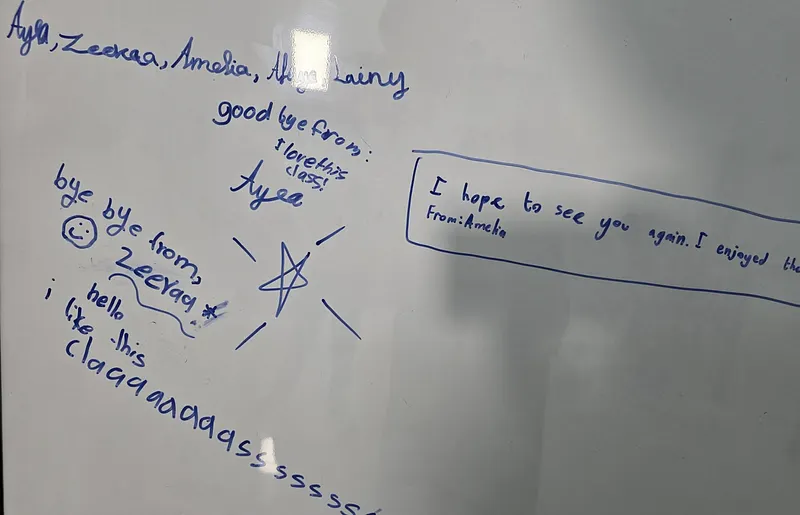 Ayra, Zeeraa, Amelia, Lainy
good bye from:
I love this
class!
Ayra
bye bye from,
Zeeraa *
hello
i like this
claqaaaaaasssssss
I hope to see you again. I enjoyed the
From: Amelia